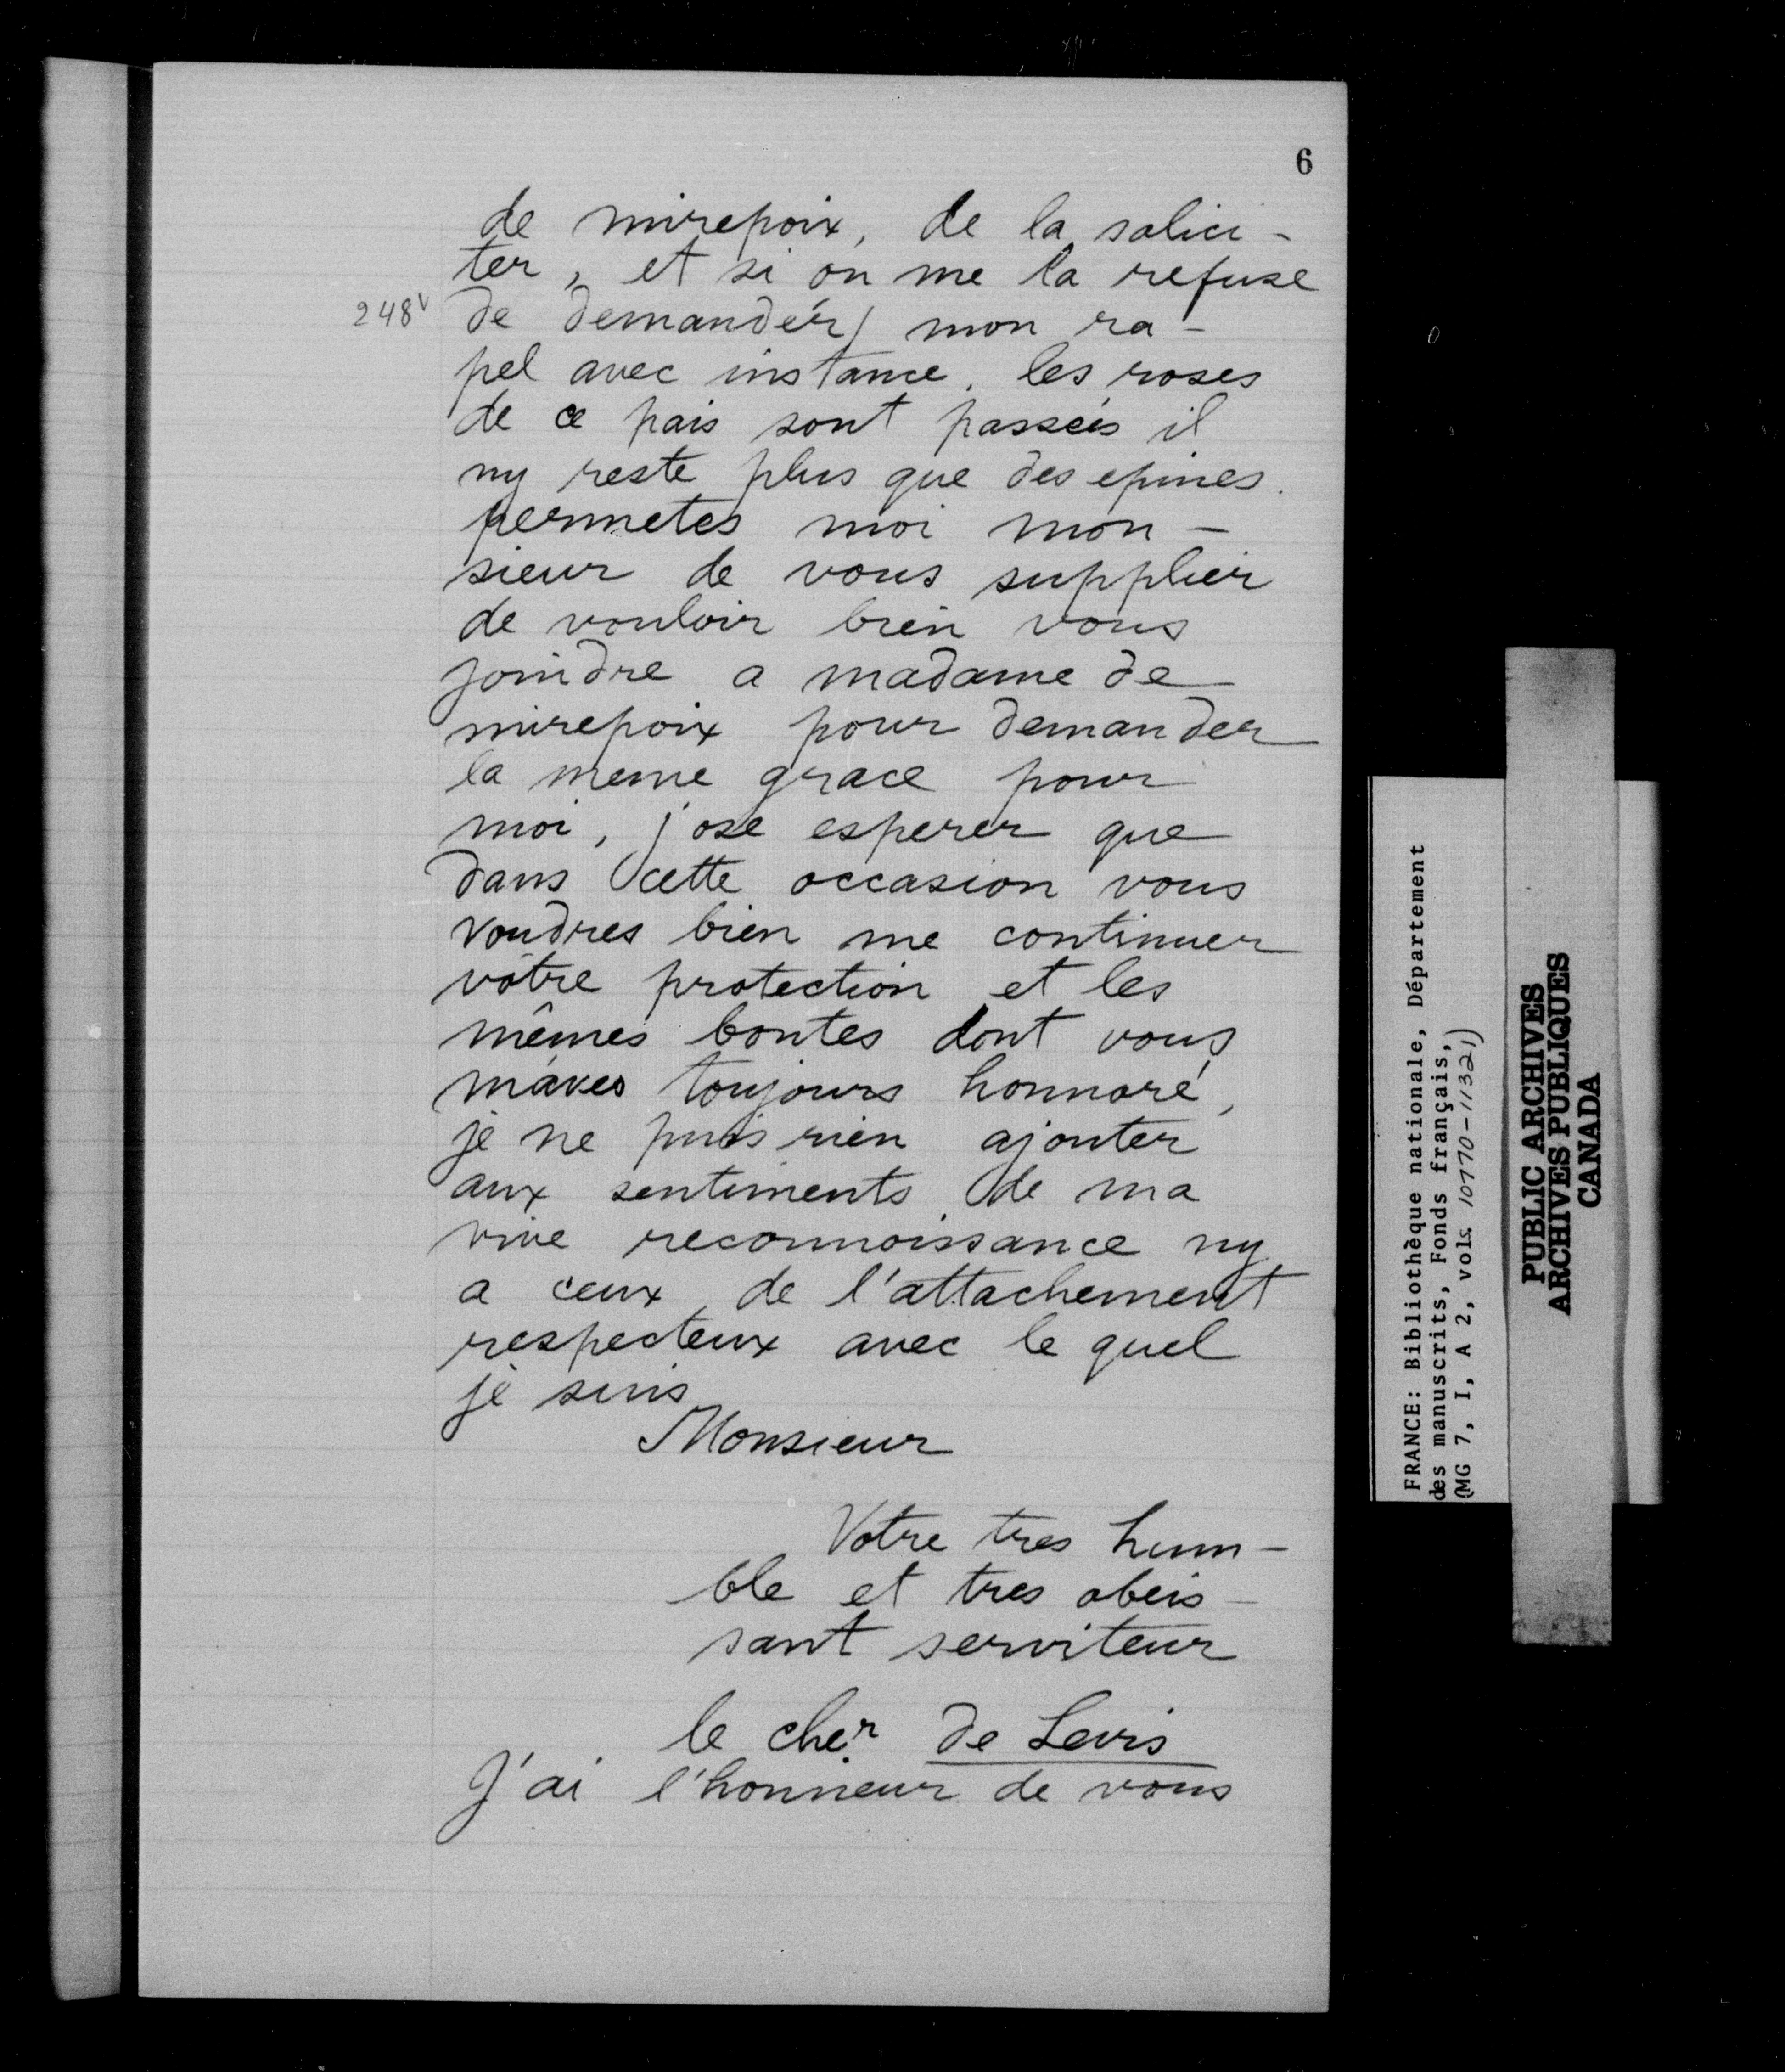 6
de mirepoix, de la salici-
ter, et si on me la refuse
248v de demandér/ mon ra-
pel avec instance. les roses
de ce pais sont passeés il
ny reste plus que des epines.
permetes moi mon-
sieur de vous supplier
de vouloir bien vous
joindre a madame de
mirepoix pour demander
la meme grace pour
moi, j'ose esperer que
dans cette occasion vous
voudres bien me continuer
vôtre protection et les
mêmes bontes dont vous
m'aves toujours honnoré,
je ne puis rien ajouter
aux sentiments de ma
vive reconnoissance ny
a ceux de l'attachement
respecteux avec le quel
je suis
Monsieur
Votre tres hum-
ble et tres obeis-
sant serviteur
le cher de Levis
J'ai l'honneur de vous
FRANCE: Bibliothèque nationale, Département
des manuscrits, Fonds français,
(MG 7, I, A 2, vols. 10770-11321)
PUBLIC ARCHIVES
ARCHIVES PUBLIQUES
CANADA